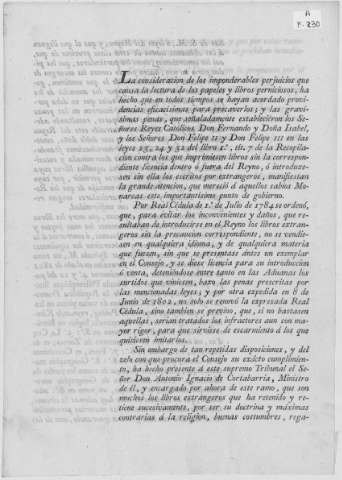 A
F. 230
La consideracion de los imponderables perjuicios que
causa la lectura de los papeles y libros perniciosos, ha
hecho que en todos tiempos se hayan acordado provi-
dencias eficacísimas para precaverlos; y las gravi-
simas penas, que señaladamente establecieron los Se-
ñores Reyes Católicos Don Fernando y Doña Isabel,
y los Señores Don Felipe II y Don Felipe III en las
leyes 23, 24 y 32 del libro 1.º, tít. 7 de la Recopila-
cion contra los que imprimiesen libros sin la correspon-
diente licencia dentro ó fuera del Reyno, ó introduxe-
sen en ella los escritos por extrangeros, manifiestan
la grande atencion, que mereció á aquellos sabios Mo-
narcas este importantísimo punto de gobierno.
Por Real Cédula de 1.º de Julio de 1784 se ordenó,
que, para evitar los inconvenientes y daños, que re-
sultaban de introducirse en el Reyno los libros extran-
geros sin la precaucion correspondiente, no se vendie-
sen en qualquiera idioma, y de qualquiera materia
que fuesen, sin que se presentase ántes un exemplar
en el Consejo, y se diese licencia para su introduccion
ó venta, deteniéndose entre tanto en las Aduanas los
surtidos que viniesen, baxo las penas prescritas por
las mencionadas leyes; y por otra expedida en 8 de
Junio de 1802, no solo se renovó la expresada Real
Cédula, sino tambien se previno, que, si no bastasen
aquellas, serian tratados los infractores aun con ma-
yor rigor, para que sirviese de escarmiento á los que
quisieren imitarlos.
Sin embargo de tan repetidas disposiciones, y del
zelo con que procura el Consejo su exâcto cumplimien-
to, ha hecho presente á este supremo Tribunal el Se-
ñor Don Antonio Ignacio de Cortabarria, Ministro
de él, y encargado por ahora de este ramo, que son
muchos los libros extrangeros que ha retenido y re-
tiene sucesivamente, por ser su doctrina y máximas
contrarias á la religion, buenas costumbres, rega-